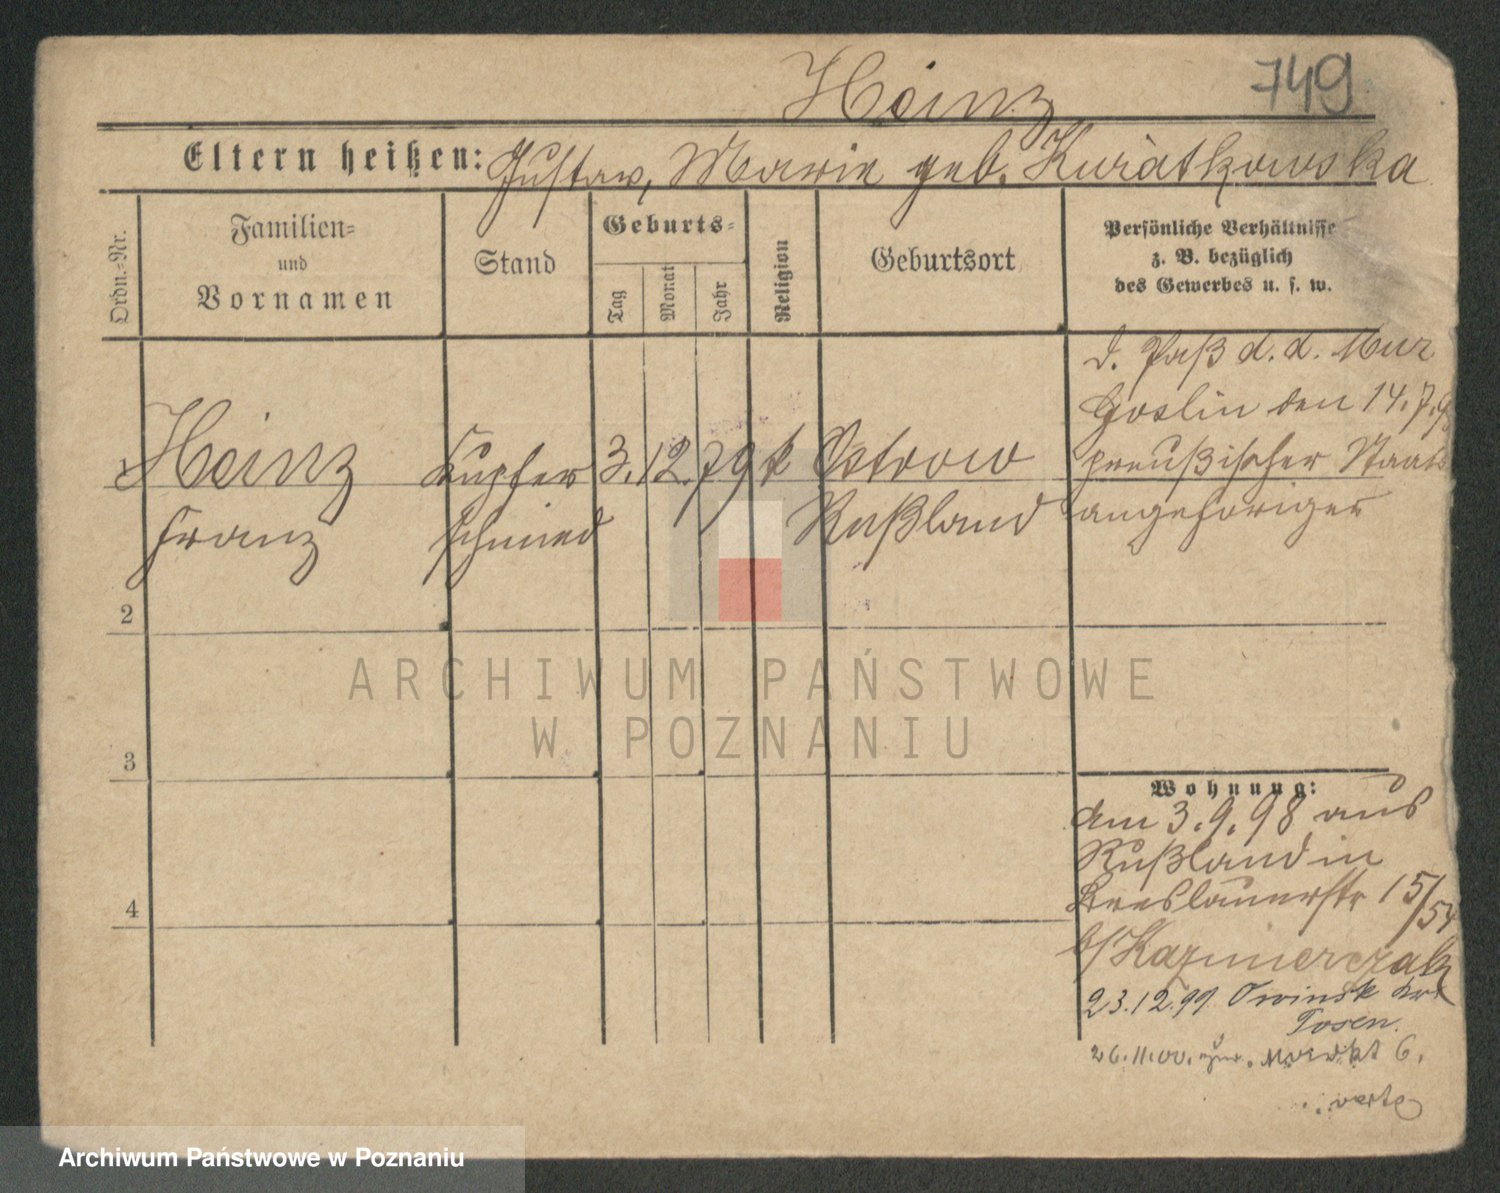 Heinz
749
Eltern heißen: Gustav, Marie geb. Kuiatkowska
Ordn.-Nr.
Familien-
und
Vornamen
Stand
Geburts-
Tag
Monat
Jahr
Religion
Geburtsort
Persönliche Verhältnisse
z. B. bezüglich
des Gewerbes u. s. w.
d. Paß d. d. Mur
Goslin den 14.7.9
preußischer Staats
angehöriger
1 Heinz Kupfer 3. 12. 79 k Ostrow
Franz schmied Rußland
2
3
4
Wohnung:
am 3.9.98 aus
Rußland in
Breslauerstr 15/54
b/ Kazmierczak
23.12.99 Owinsk Krs
Posen.
26.11.00. Markt 6.
verte
ARCHIWUM PAŃSTWOWE
W POZNANIU
Archiwum Państwowe w Poznaniu